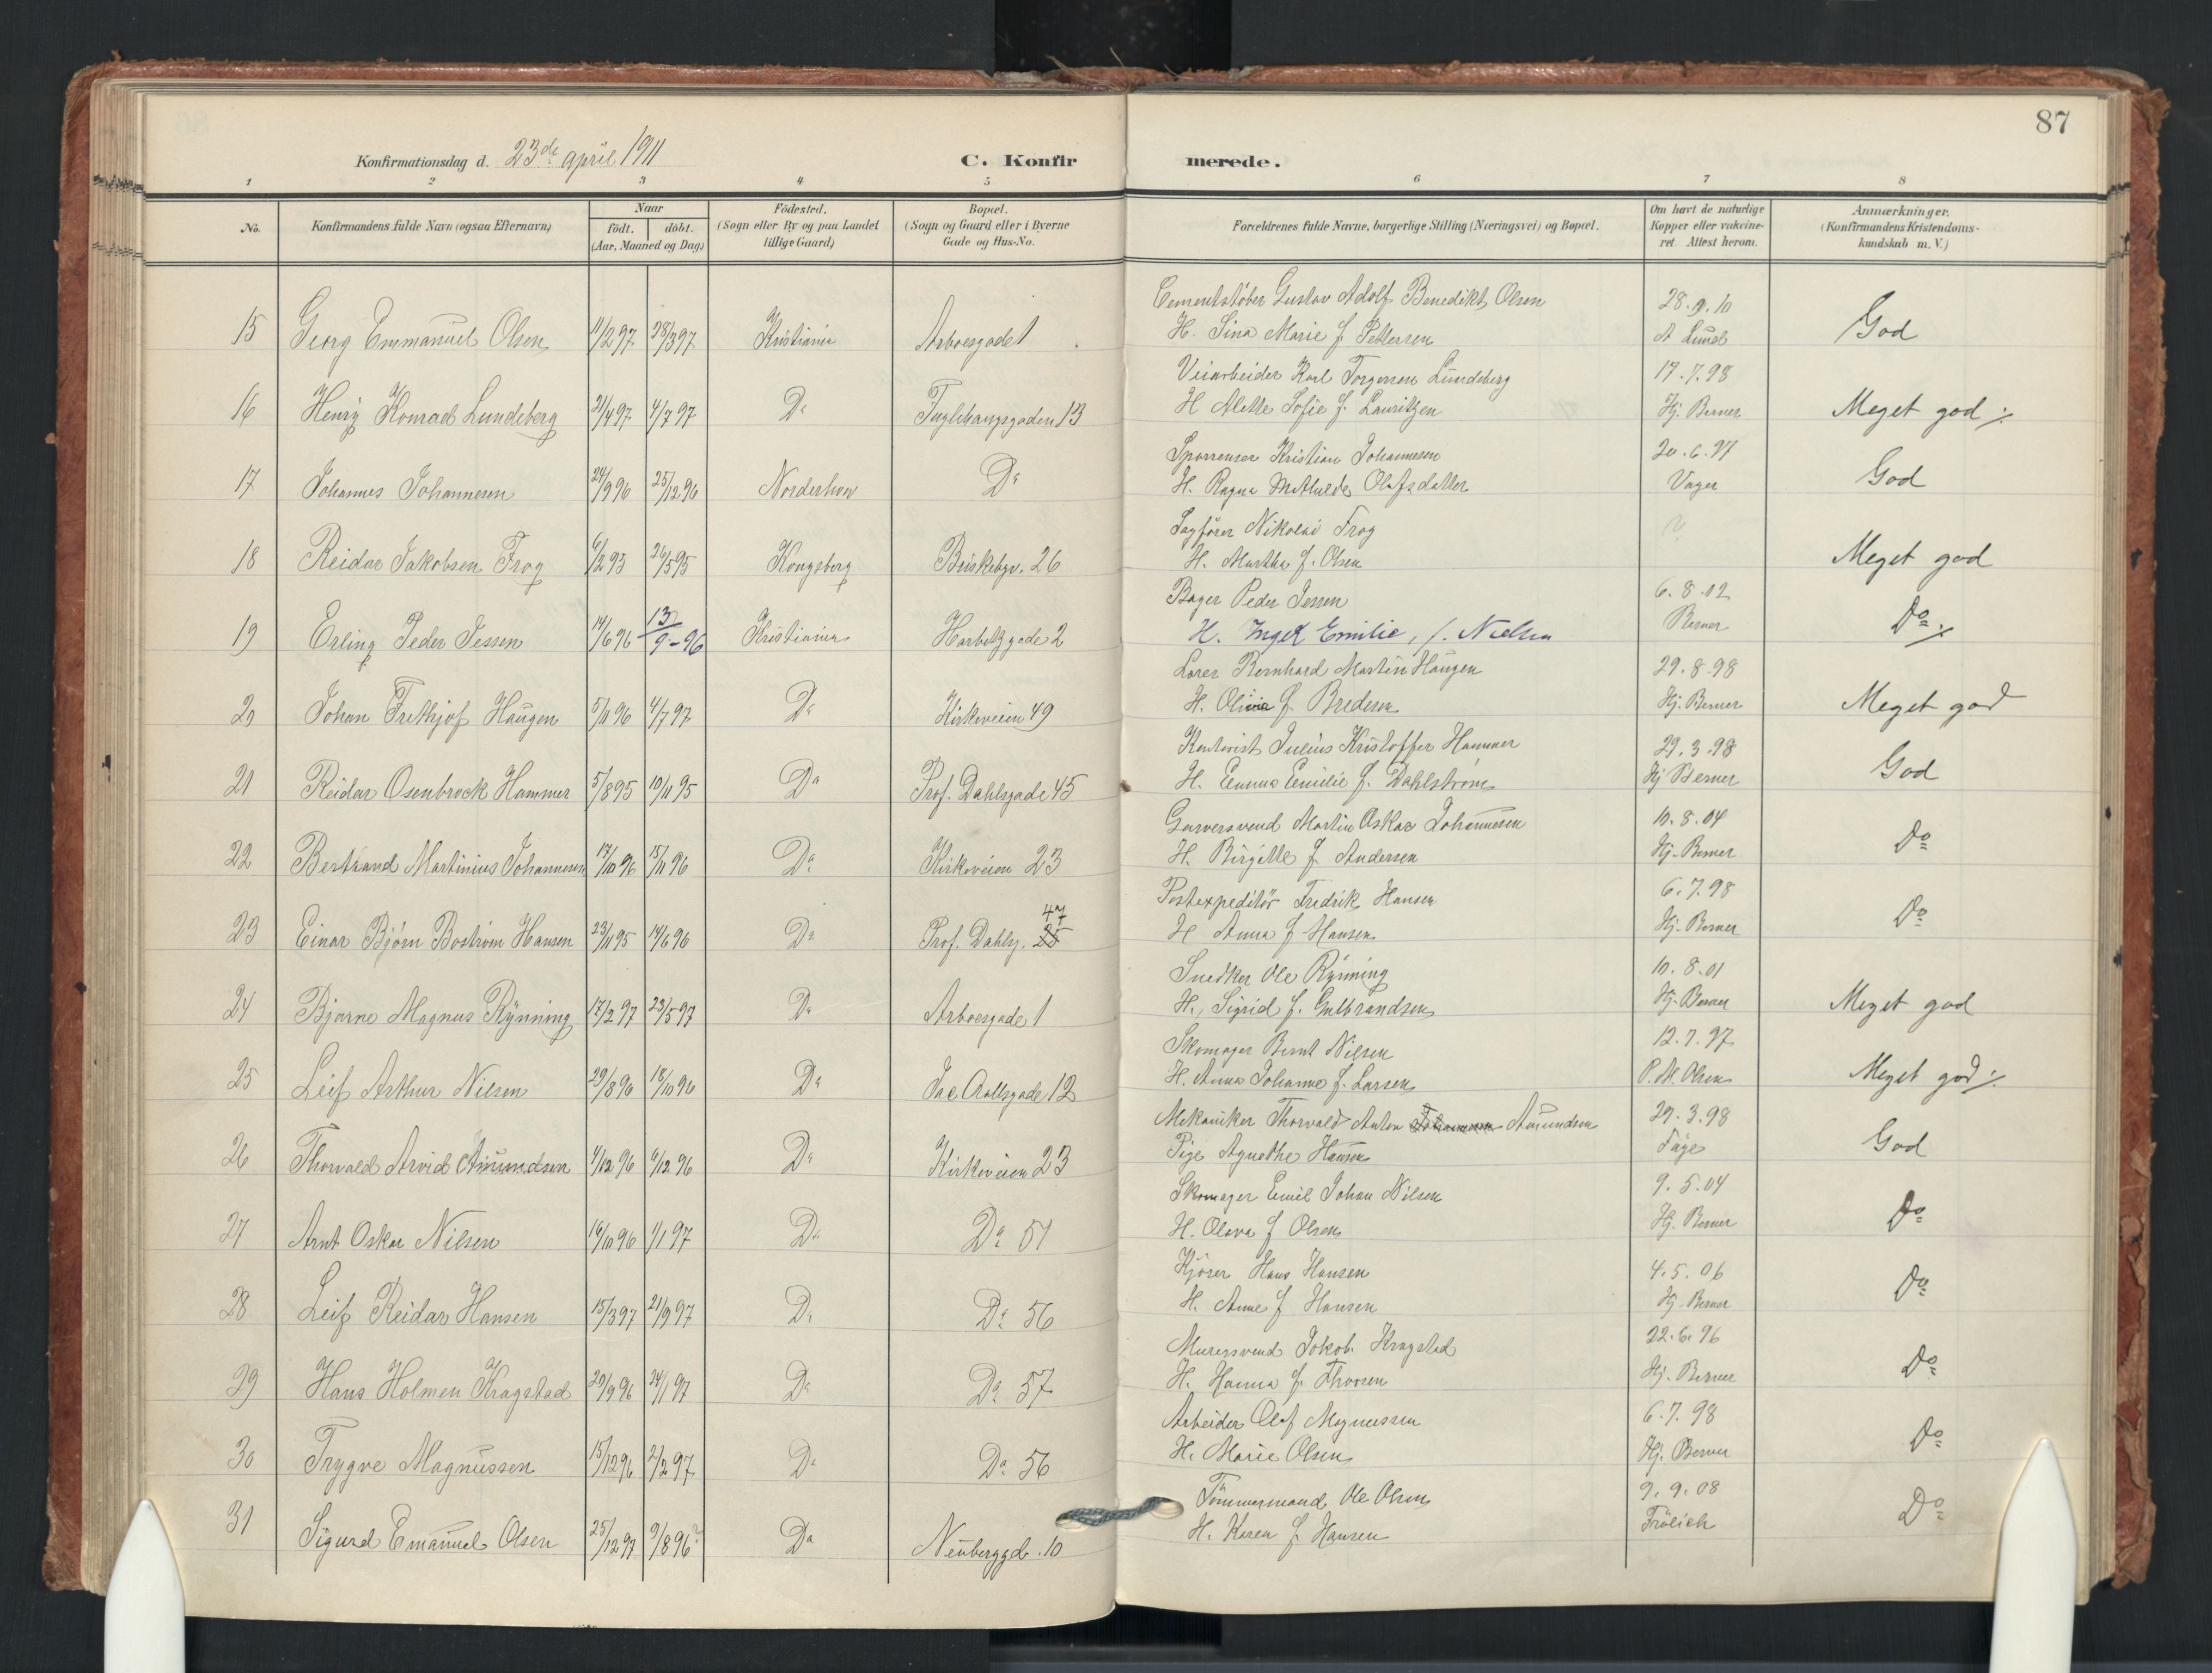 87
Konfirmationsdag d. 23de april 1911 C. Konfirmerede.
1 2 3 4 5 6 7 8
No. Konfirmandens fulde Navn (ogsaa Efternavn) Naar født. døbt. (Aar, Maaned og Dag) Fødested. (Sogn eller By og paa Landet tillige Gaard) Bopæl. (Sogn og Gaard eller i Byerne Gade og Hus-No. Forældrenes fulde Navne, borgerlige Stilling (Næringsvei) og Bopæl. Om havt de naturlige Kopper eller vakcineret. Attest herom. Anmærkninger. (Konfirmandens Kristendomskundskab m. V.)
Cementstøber Gustav Adolf Benedikt Olsen 28.9.10
15 Georg Emmanuel Olsen 11/2 97 28/3 97 Kristiania Arboesgade 1 H. Sina Marie f. Pettersen A Lund God
Veiarbeider Karl Torgersen Lundeberg 17.7.98
16 Henry Konrad Lundeberg 21/4 97 4/7 97 Do Fuglehaugsgaden 13 H Alette Sofie f. Lauritzen Hj. Berner Meget god ⁒
Kristian Johannesen 20.6.97
17 Johannes Johannesen 24/9 96 25/12 96 Norderhov Do H. Ragna Mathilde Olafsdatter Vager God
Sagfører Nikolai Frog ?
18 Reidar Jakobsen Frog 6/2 95 26/5 95 Kongsberg Briskebyv. 26 H. Martha f. Olsen Meget god
Bager Peder Jessen 6.8.02
19 Erling Peder Jessen 14/6 96 13/9-96 Kristiania Harbitzgade 2 H. Inga Emilie, f. Nielsen Berner Do ⁒
Bernhard Martin Haugen 29.8.98
20 Johan Frethjof Haugen 5/11 96 4/7 97 Do Kirkeveien 49 H. Olivia f Bredesen Hj. Berner Meget god
Kontorist Julius Kristoffer Hammer 29.3.98
21 Reidar Osenbrock Hammer 5/8 95 10/11 95 Do Prof. Dahlsgade 45 H. Emma Emilie f. Dahlstrøm Hj Berner God
Garversvend Martin Oskar Johannesen 10.8.04
22 Bertrand Martinius Johannesen 17/10 96 15/11 96 Do Kirkeveien 23 H. Birgitte f Andersen Hj. Berner Do
Postexpeditør Fredrik Hansen 6.7.98
23 Einar Bjørn Bostrøm Hansen 23/11 95 14/6 96 Do Prof. Dahlsg. 25 47 H Anna f Hansen Hj. Berner Do
Snedker Ole Rynning 10.8.01
24 Bjarne Magnus Rynning 17/2 97 23/5 97 Do Arboesgade 1 H. Sigrid f. Gulbrandsen Hj. Berner Meget god
Skomager Bernt Nilsen 12.7.97
25 Leif Arthur Nilsen 29/8 96 18/10 96 Do Jac Aallsgade 12 H. Anna Johanne f. Larsen P. M. Olsen Meget god ⁒
Mekaniker Thorvald Anton Johannesen Amundsen 29.3.98
26 Thorvald Arvid Amundsen 4/12 96 6/12 96 Do Kirkeveien 23 Pige Agnethe Hansen Faye God
Skomager Emil Johan Nilsen 9.5.04
27 Arnt Oskar Nilsen 16/10 96 1/1 97 Do Do 51 H. Olava f Olsen Hj. Berner Do
Kjører Hans Hansen 4.5.06
28 Leif Reidar Hansen 15/3 97 21/9 97 Do Do 56 H. Anne f Hansen Hj. Berner Do
Murersvend Jakob Kragstad 22.6.96
29 Hans Holmen Kragstad 29/9 96 24/1 97 Do Do 57 H. Hanna f. Thorsen Hj. Berner Do
Arbeider Olaf Magnussen 6.7.98
30 Trygve Magnussen 15/12 96 2/2 97 Do Do 56 H. Marie Olsen Hj. Berner Do
Tømmermand Ole Olsen 9.9.08
31 Sigurd Emanuel Olsen 25/12 97 9/8 96? Do Neuberggd. 10 H. Karen f Hansen Frölich Do